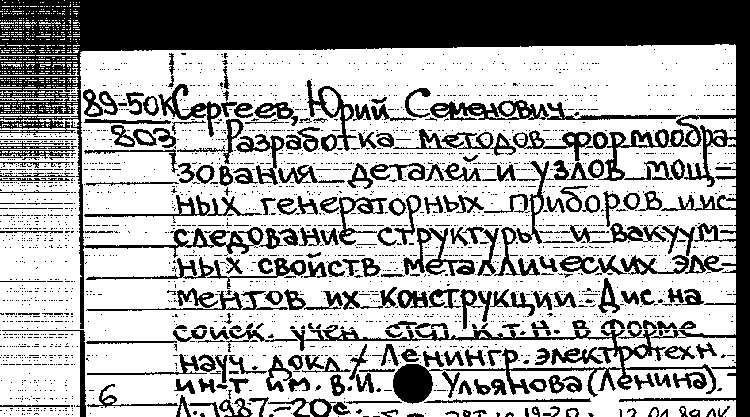 89-50К Сергеев, Юрий Семенович.
803 Разработка методов формообра-
зования деталей и узлов мощ-
ных генераторных приборов и ис-
следование структуры и вакуум-
ных свойств металлических эле-
ментов их конструкции: Дис. на
соиск. учен. степ. к.т.н. в форме
науч. докл / Ленингр. электротехн.
ин-т им. В.И. Ульянова (Ленина). -
6 Л., 1987. - 20с.